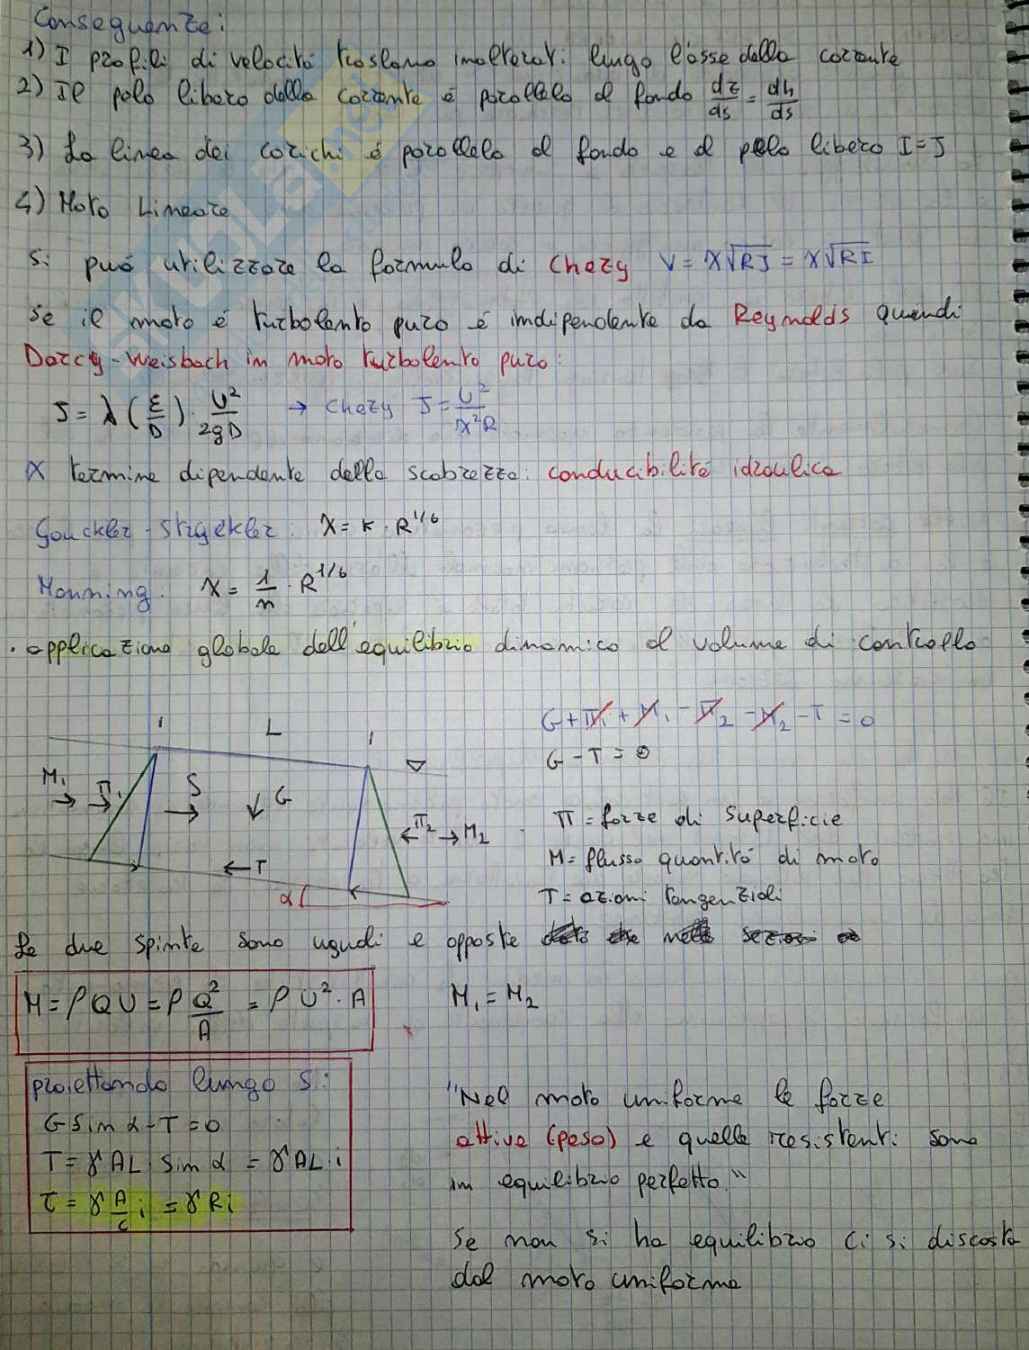 Conseguenze:
1) I profili di velocità traslano inalterati lungo l'asse della corrente
2) Il pelo libero della corrente è parallelo al fondo dz/ds = dh/ds
3) La linea dei carichi è parallela al fondo e al pelo libero I=J
4) Moto Lineare
Si può utilizzare la formula di Chezy V = χ√RJ = χ√RI
Se il moto è turbolento puro è indipendente da Reynolds quindi
Darcy-Weisbach in moto turbolento puro:
J = λ (ε/D) · U²/2gD → Chezy J = U²/χ²R
χ termine dipendente della scabrezza: conducibilità idraulica
Gauckler-Strgekler: χ = k · R^1/6
Manning: χ = 1/n · R^1/6
· applicazione globale dell'equilibrio dinamico al volume di controllo
1 L 1
G + Π₁ + M₁ - Π₂ - M₂ - T = 0
G - T = 0
M₁ Π₁ S G Π₂ M₂
T
α
Π = forze di superficie
M = flusso quantità di moto
T = azioni tangenziali
Le due spinte sono uguali e opposte
M = ρQU = ρ Q²/A = ρ U² · A
M₁ = M₂
proiettando lungo S:
G sin α - T = 0
T = γ AL sin α = γ AL · i
τ = γ A/C i = γ R i
"Nel moto uniforme le forze
attive (peso) e quelle resistenti sono
in equilibrio perfetto."
Se non si ha equilibrio ci si discosta
dal moto uniforme